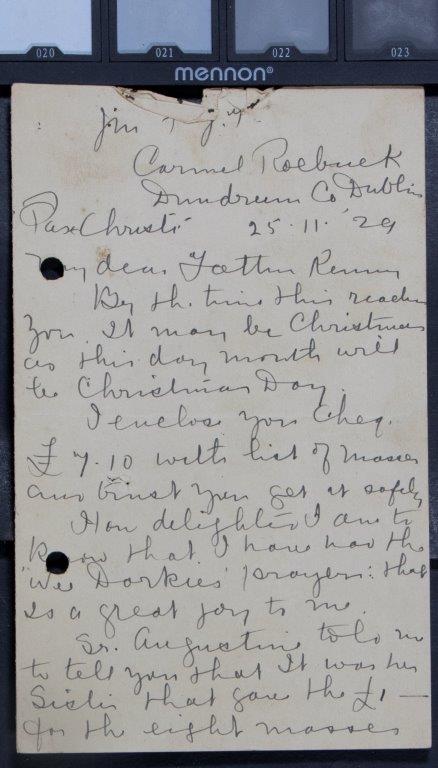 020 021 022 023
mennon®
Carmel Roebuck
Dundrum Co Dublin
Pax Christi 25.11.'29
My dear Father Kenny
By the time this reaches
you it may be Christmas
as this day month will
be Christmas Day.
I enclose you Cheq.
£7.10 with list of Masses
and trust you get it safely
How delighted I am to
know that I have had the
'Wee Darkies' prayers: that
is a great joy to me.
Sr. Augustine told me
to tell you that It was her
Sister that gave the £1 —
for the eight masses